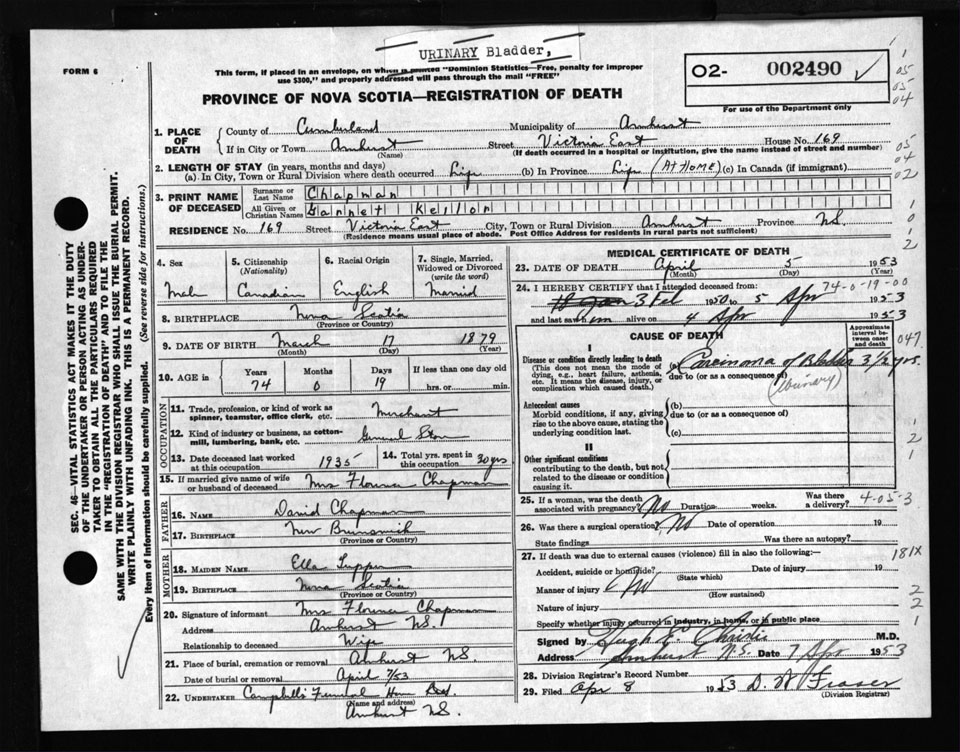 URINARY Bladder,
FORM 6
This form, if placed in an envelope, on which is printed "Dominion Statistics—Free, penalty for improper
use $300," and properly addressed will pass through the mail "FREE"
O2- 002490 ✓
For use of the Department only
PROVINCE OF NOVA SCOTIA—REGISTRATION OF DEATH
1. PLACE OF DEATH
County of Cumberland Municipality of Amherst
If in City or Town Amherst (Name) Street Victoria East House No. 169
(If death occurred in a hospital or institution, give the name instead of street and number)
2. LENGTH OF STAY (in years, months and days)
(a) In City, Town or Rural Division where death occurred Life (b) In Province Life (AT HOME) (c) In Canada (if immigrant)
3. PRINT NAME OF DECEASED
Surname or Last Name Chapman
All Given or Christian Names Garnet Keilor
RESIDENCE No. 169 Street Victoria East City, Town or Rural Division Amherst Province N.S.
(Residence means usual place of abode. Post Office Address for residents in rural parts not sufficient)
SEC. 46—VITAL STATISTICS ACT MAKES IT THE DUTY
OF THE UNDERTAKER OR PERSON ACTING AS UNDER-
TAKER TO OBTAIN ALL THE PARTICULARS REQUIRED
IN THE "REGISTRATION OF DEATH" AND TO FILE THE
SAME WITH THE DIVISION REGISTRAR WHO SHALL ISSUE THE BURIAL PERMIT.
WRITE PLAINLY WITH UNFADING INK. THIS IS A PERMANENT RECORD.
Every item of Information should be carefully supplied. (See reverse side for instructions.)
4. Sex
Male
5. Citizenship (Nationality)
Canadian
6. Racial Origin
English
7. Single, Married, Widowed or Divorced (write the word)
Married
8. BIRTHPLACE Nova Scotia
(Province or Country)
9. DATE OF BIRTH March 17 1879
(Month) (Day) (Year)
10. AGE in Years 74 Months 0 Days 19 If less than one day old hrs. or min.
OCCUPATION
11. Trade, profession, or kind of work as spinner, teamster, office clerk, etc. Merchant
12. Kind of industry or business, as cotton-mill, lumbering, bank, etc. General Store
13. Date deceased last worked at this occupation 1935
14. Total yrs. spent in this occupation 30 yrs
15. If married give name of wife or husband of deceased Mrs Florence Chapman
FATHER
16. NAME David Chapman
17. BIRTHPLACE New Brunswick
(Province or Country)
MOTHER
18. MAIDEN NAME Ella Tupper
19. BIRTHPLACE Nova Scotia
(Province or Country)
20. Signature of informant Mrs Florence Chapman
Address Amherst NS.
Relationship to deceased Wife
21. Place of burial, cremation or removal Amherst NS.
Date of burial or removal April 7/53
22. UNDERTAKER Campbell's Funeral Home
(Name and address)
Amherst NS.
MEDICAL CERTIFICATE OF DEATH
23. DATE OF DEATH April 5 1953
(Month) (Day) (Year)
24. I HEREBY CERTIFY that I attended deceased from: 74-0-19-00
3 Feb 1950 to 5 Apr 1953
and last saw him alive on 4 Apr 1953
CAUSE OF DEATH
Approximate interval between onset and death
I
Disease or condition directly leading to death
(This does not mean the mode of dying, e.g., heart failure, asthenia, etc. It means the disease, injury, or complication which caused death.)
(a) Carcinoma of Bladder 3 1/2 yrs.
due to (or as a consequence of) (Urinary)
Antecedent causes
Morbid conditions, if any, giving rise to the above cause, stating the underlying condition last.
(b)
due to (or as a consequence of)
(c)
II
Other significant conditions
contributing to the death, but not related to the disease or condition causing it.
25. If a woman, was the death associated with pregnancy? No Duration weeks. Was there a delivery? 4-05-3
26. Was there a surgical operation? No Date of operation 19
State findings Was there an autopsy?
27. If death was due to external causes (violence) fill in also the following:—
Accident, suicide or homicide? Date of injury 19
(State which)
Manner of injury No
(How sustained)
Nature of injury
Specify whether injury occurred in industry, in home, or in public place
Signed by Hugh E. Christie M.D.
Address Amherst N.S. Date 7 Apr 1953
28. Division Registrar's Record Number
29. Filed Apr 8 1953 D. W. Fraser
(Division Registrar)
1
05
05
04
05
04
02
1
0
1
2
047
1
2
1
181X
2
2
1